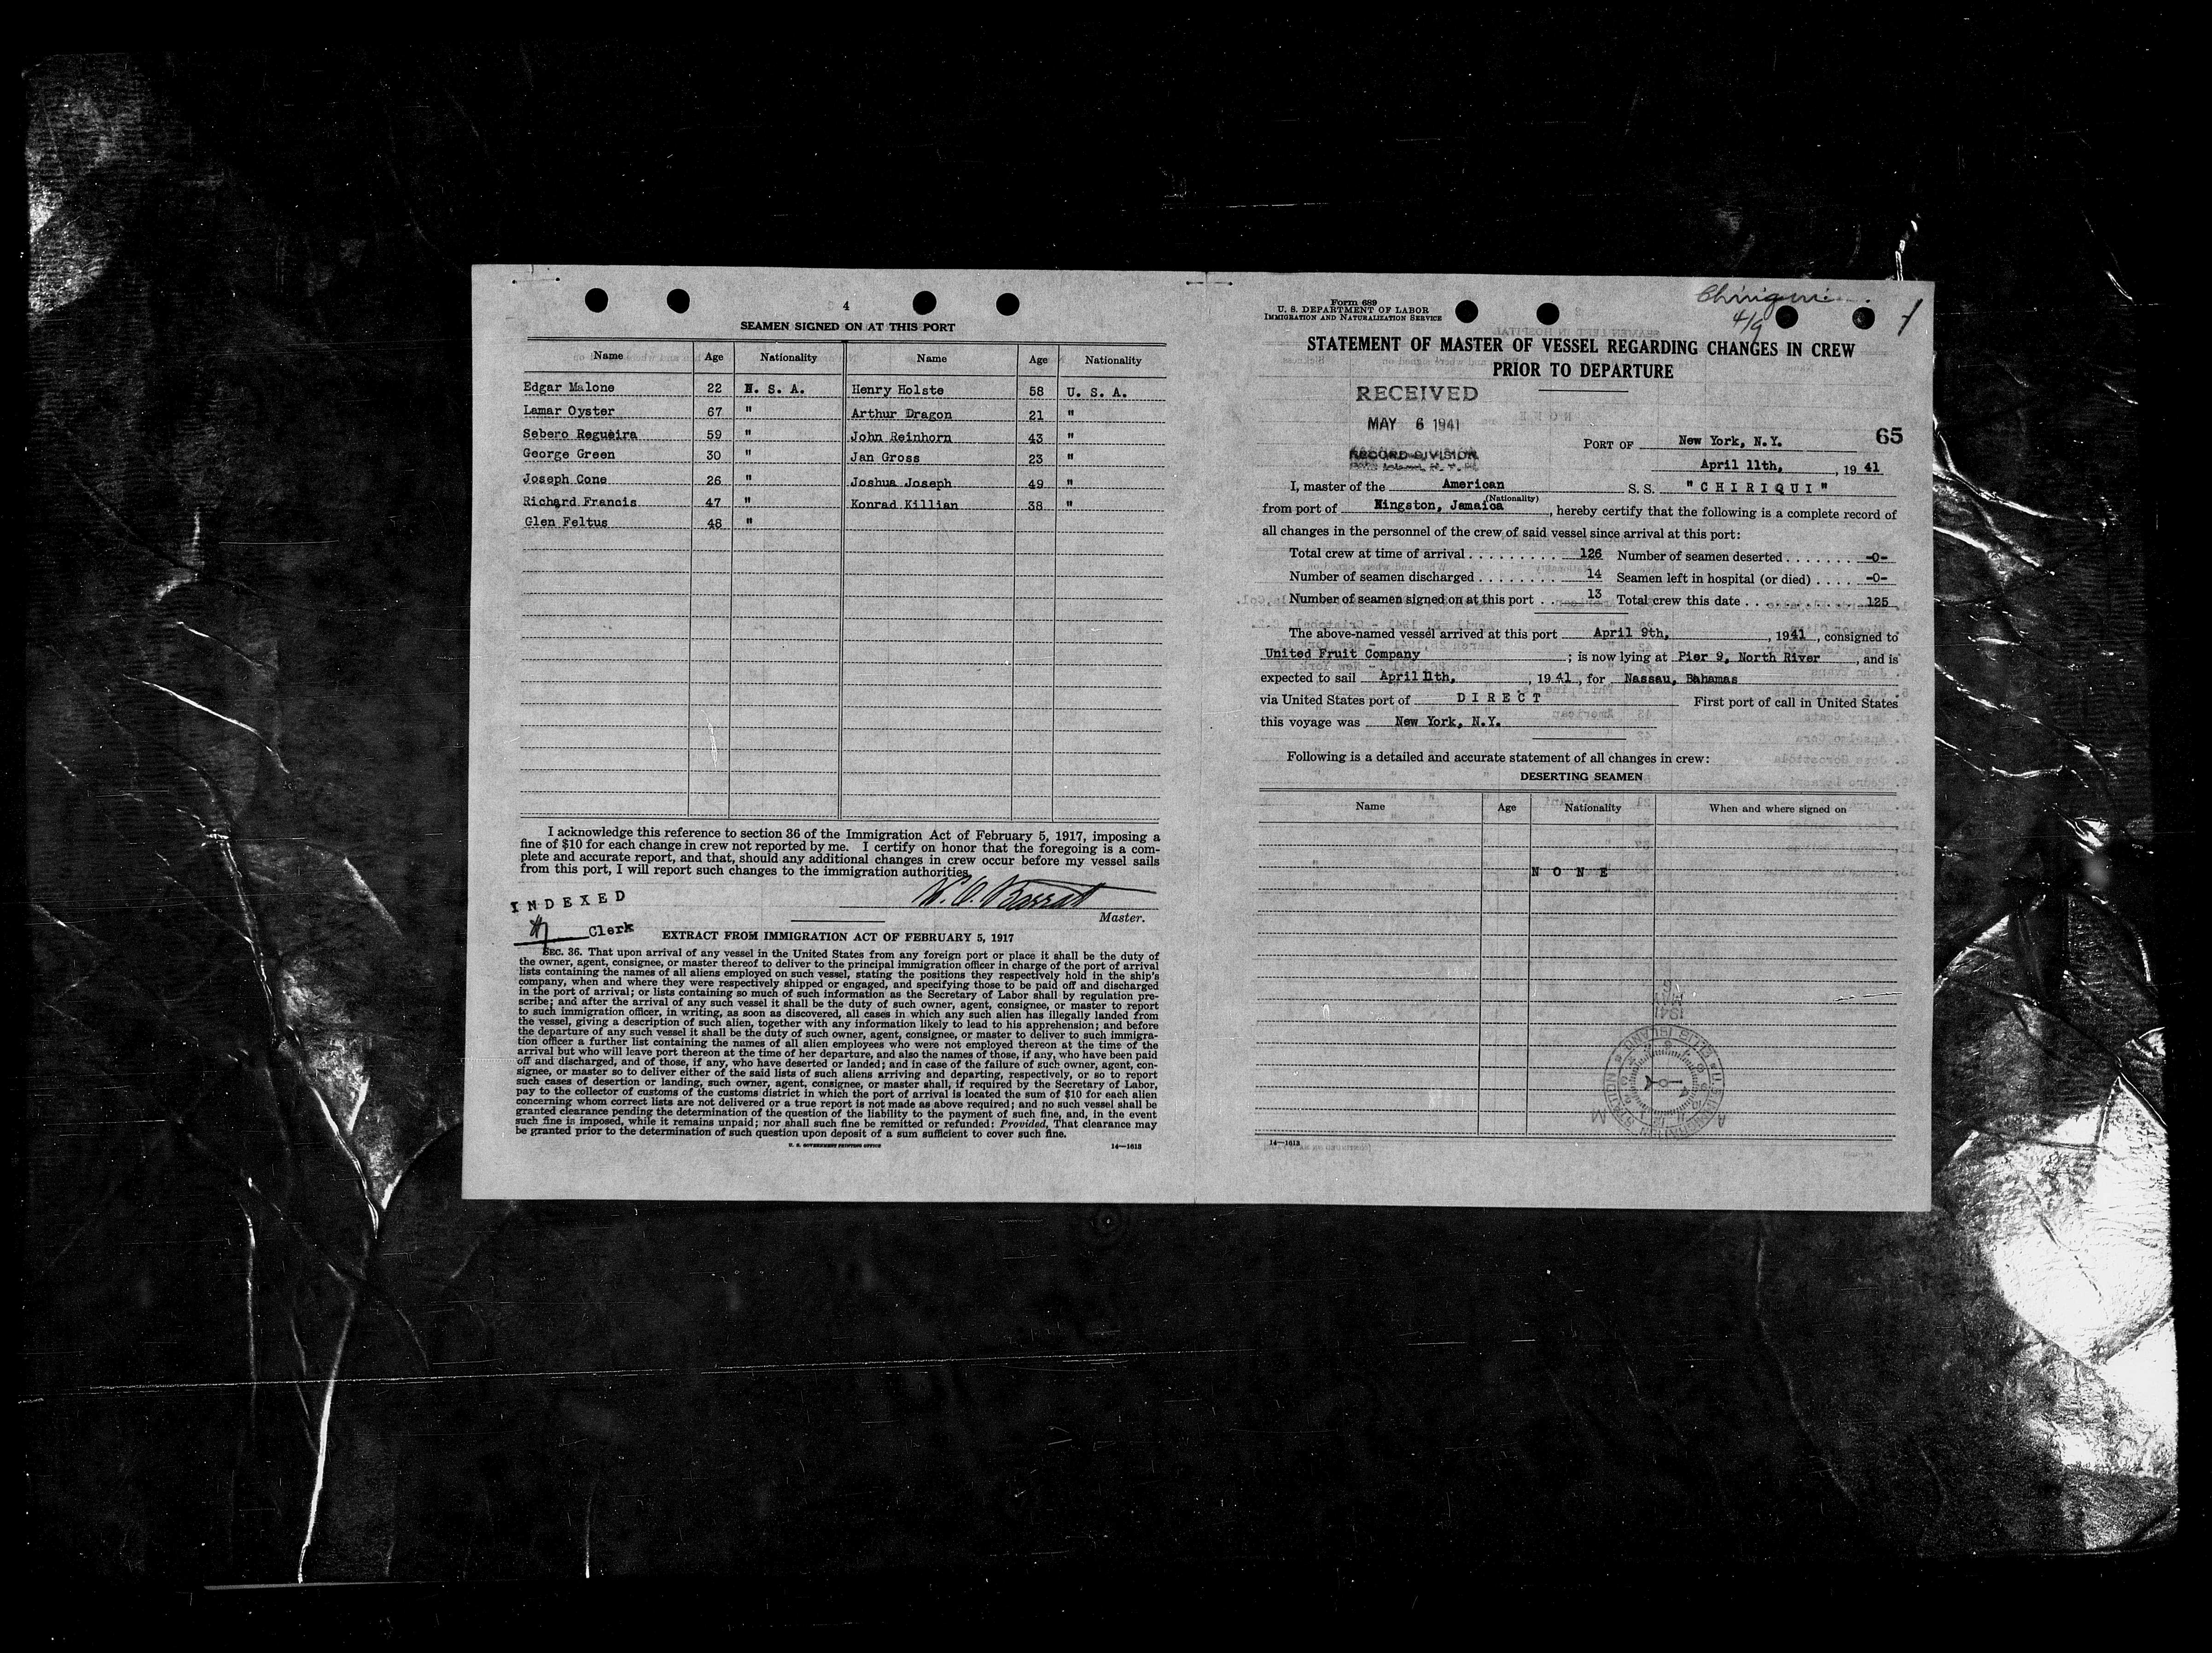 4
SEAMEN SIGNED ON AT THIS PORT
Name Age Nationality Name Age Nationality
Edgar Malone 22 U. S. A. Henry Holste 58 U. S. A.
Lamar Oyster 67 " Arthur Dragon 21 "
Sebero Regueira 59 " John Reinhorn 43 "
George Green 30 " Jan Gross 23 "
Joseph Cone 26 " Joshua Joseph 49 "
Richard Francis 47 " Konrad Killian 38 "
Glen Feltus 48 "
I acknowledge this reference to section 36 of the Immigration Act of February 5, 1917, imposing a
fine of $10 for each change in crew not reported by me. I certify on honor that the foregoing is a com-
plete and accurate report, and that, should any additional changes in crew occur before my vessel sails
from this port, I will report such changes to the immigration authorities.
INDEXED
Master.
Clerk
EXTRACT FROM IMMIGRATION ACT OF FEBRUARY 5, 1917
SEC. 36. That upon arrival of any vessel in the United States from any foreign port or place it shall be the duty of
the owner, agent, consignee, or master thereof to deliver to the principal immigration officer in charge of the port of arrival
lists containing the names of all aliens employed on such vessel, stating the positions they respectively hold in the ship's
company, when and where they were respectively shipped or engaged, and specifying those to be paid off and discharged
in the port of arrival; or lists containing so much of such information as the Secretary of Labor shall by regulation pre-
scribe; and after the arrival of any such vessel it shall be the duty of such owner, agent, consignee, or master to report
to such immigration officer, in writing, as soon as discovered, all cases in which any such alien has illegally landed from
the vessel, giving a description of such alien, together with any information likely to lead to his apprehension; and before
the departure of any such vessel it shall be the duty of such owner, agent, consignee, or master to deliver to such immigra-
tion officer a further list containing the names of all alien employees who were not employed thereon at the time of the
arrival but who will leave port thereon at the time of her departure, and also the names of those, if any, who have been paid
off and discharged, and of those, if any, who have deserted or landed; and in case of the failure of such owner, agent, con-
signee, or master so to deliver either of the said lists of such aliens arriving and departing, respectively, or so to report
such cases of desertion or landing, such owner, agent, consignee, or master shall, if required by the Secretary of Labor,
pay to the collector of customs of the customs district in which the port of arrival is located the sum of $10 for each alien
concerning whom correct lists are not delivered or a true report is not made as above required; and no such vessel shall be
granted clearance pending the determination of the question of the liability to the payment of such fine, and, in the event
such fine is imposed, while it remains unpaid; nor shall such fine be remitted or refunded: Provided, That clearance may
be granted prior to the determination of such question upon deposit of a sum sufficient to cover such fine.
U. S. GOVERNMENT PRINTING OFFICE 14—1613
Chiriqui
4/9
1
Form 689
U. S. DEPARTMENT OF LABOR
IMMIGRATION AND NATURALIZATION SERVICE
STATEMENT OF MASTER OF VESSEL REGARDING CHANGES IN CREW
PRIOR TO DEPARTURE
RECEIVED
MAY 6 1941
RECORD DIVISION
65
PORT OF New York, N.Y.
April 11th, , 19 41
I, master of the American S. S. "CHIRIQUI"
(Nationality)
from port of Kingston, Jamaica , hereby certify that the following is a complete record of
all changes in the personnel of the crew of said vessel since arrival at this port:
Total crew at time of arrival . . . . . . . . . 126 Number of seamen deserted . . . . . . . -0-
Number of seamen discharged . . . . . . . . 14 Seamen left in hospital (or died) . . . . -0-
Number of seamen signed on at this port . . 13 Total crew this date . . . . . . . . . . . . 125
The above-named vessel arrived at this port April 9th, , 1941 , consigned to
United Fruit Company ; is now lying at Pier 9, North River , and is
expected to sail April 11th, , 19 41 , for Nassau, Bahamas
via United States port of DIRECT First port of call in United States
this voyage was New York, N.Y.
Following is a detailed and accurate statement of all changes in crew:
DESERTING SEAMEN
Name Age Nationality When and where signed on
N O N E
14—1613